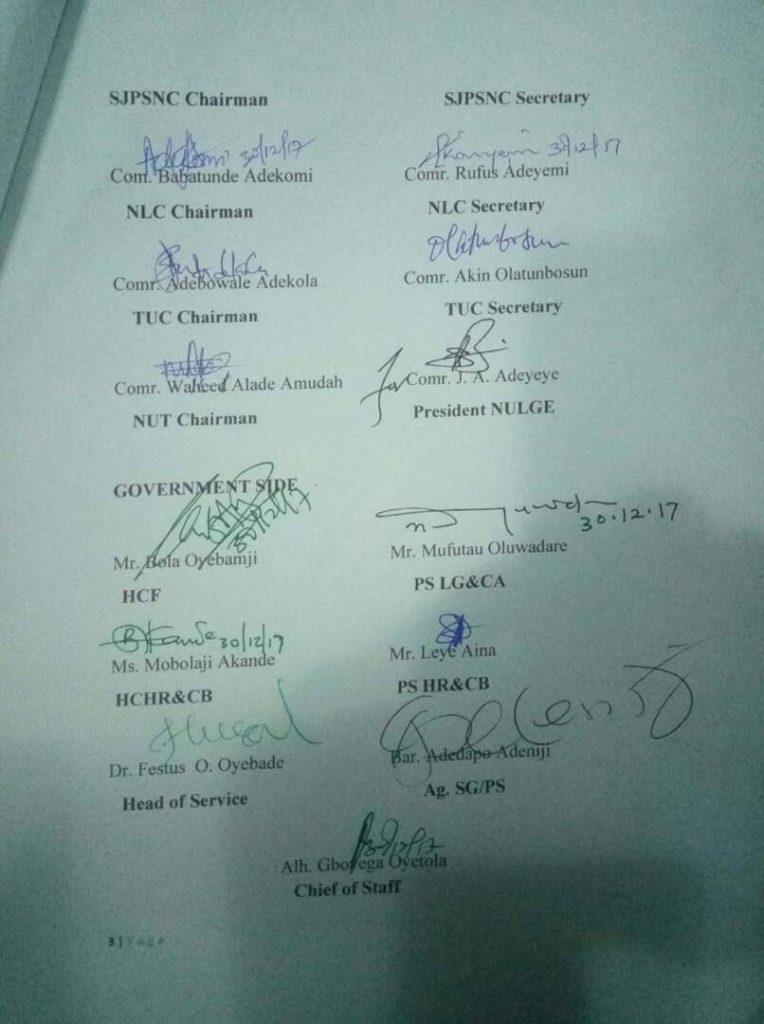 SJPSNC Chairman SJPSNC Secretary
30/12/17 30/12/17
Com. Babatunde Adekomi Comr. Rufus Adeyemi
NLC Chairman NLC Secretary
Olatunbosun
Comr. Adebowale Adekola Comr. Akin Olatunbosun
TUC Chairman TUC Secretary
Comr. Waheed Alade Amudah for Comr. J. A. Adeyeye
NUT Chairman President NULGE
GOVERNMENT SIDE
30/12/17 30.12.17
Mr. Bola Oyebamji Mr. Mufutau Oluwadare
HCF PS LG&CA
30/12/17
Ms. Mobolaji Akande Mr. Leye Aina
HCHR&CB PS HR&CB
Dr. Festus O. Oyebade Bar. Adedapo Adeniji
Head of Service Ag. SG/PS
Alh. Gboyega Oyetola
Chief of Staff
3 | Page